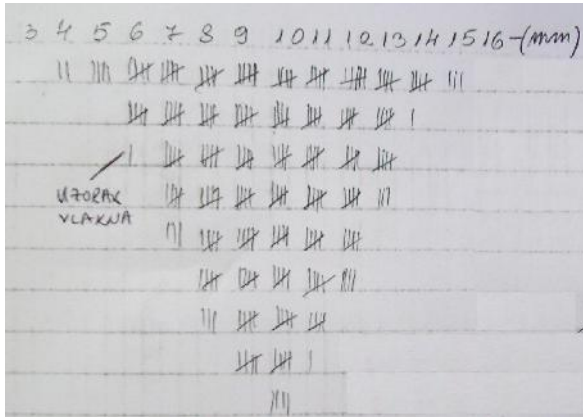 3 4 5 6 7 8 9 10 11 12 13 14 15 16 - (mm)
UZORAK
VLAKNA